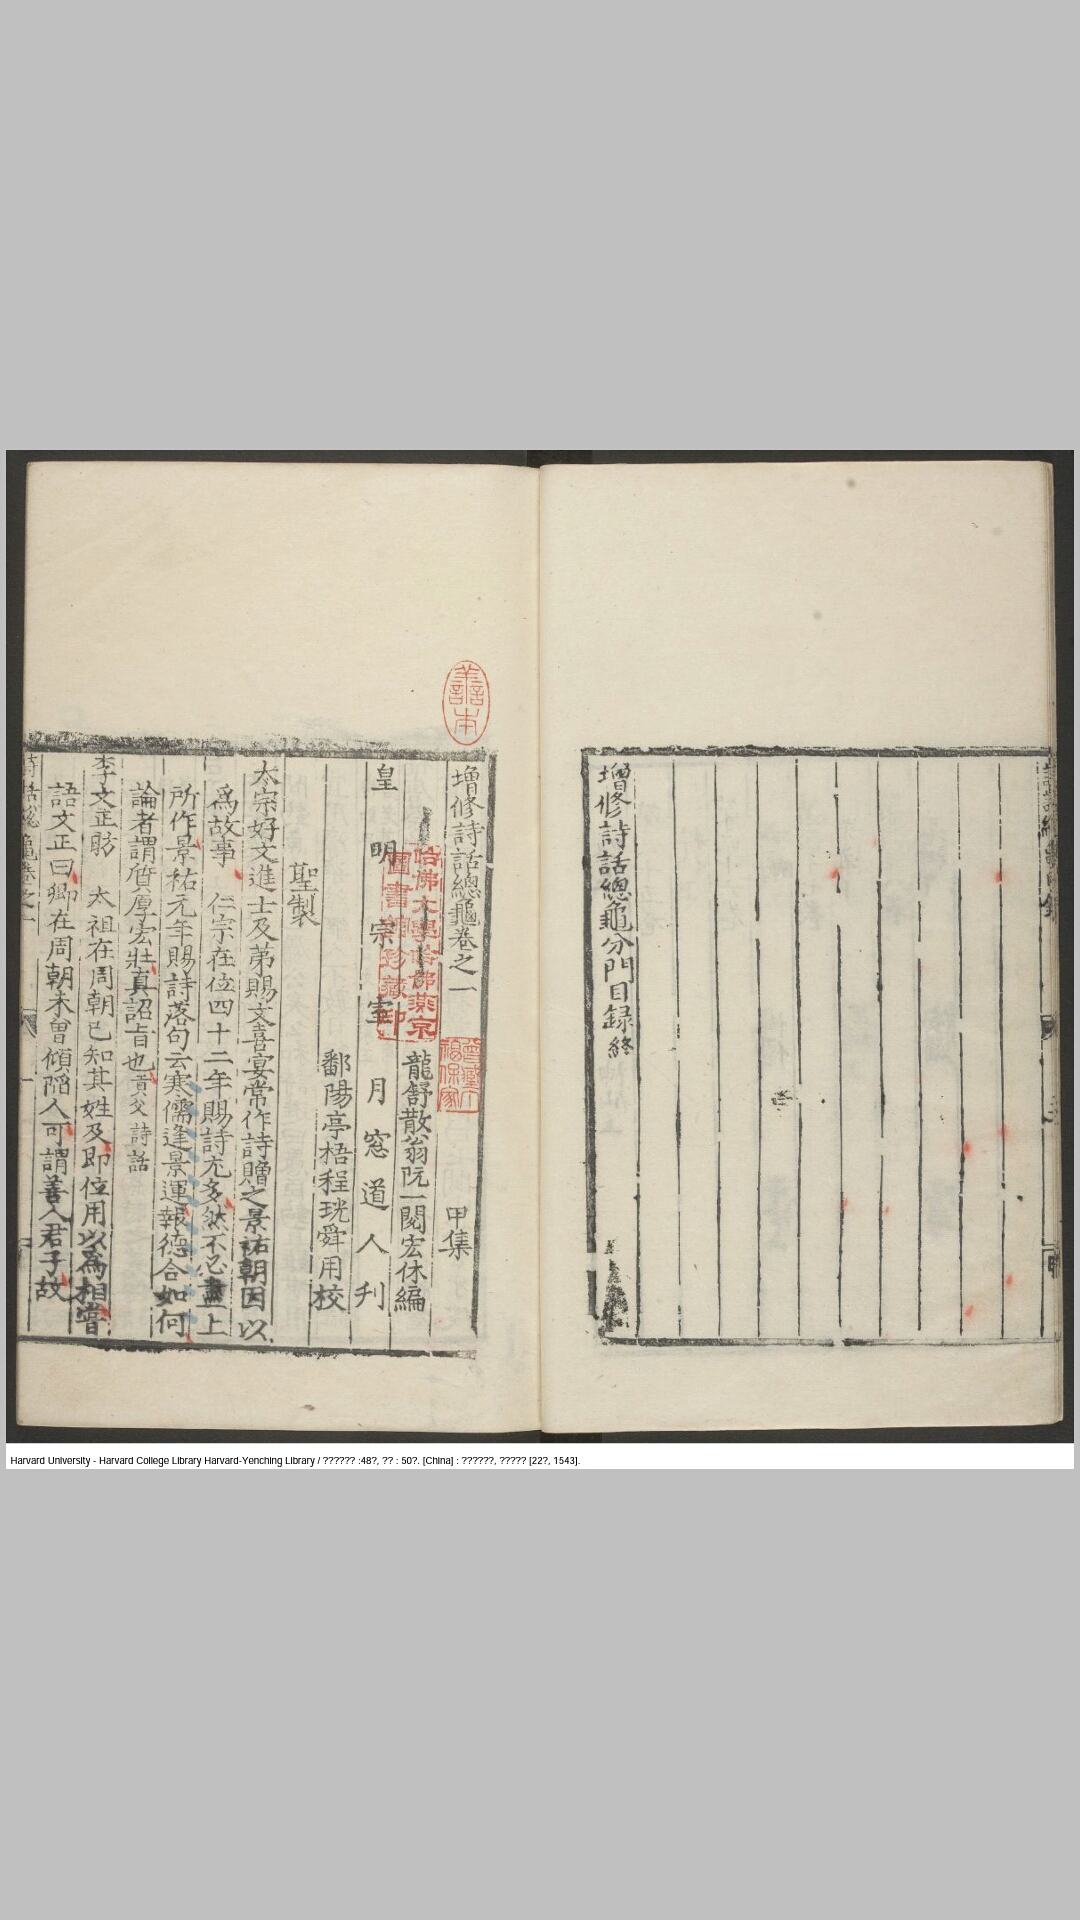 增修詩話總龜分門目録終
善本
增修詩話總龜卷之一 甲集
龍舒散翁阮一閱宏休編
皇明宗室月窓道人刋
鄱陽亭梧程珖舜用校
哈佛大學哈佛燕京
圖書館珍藏印
聖製
太宗好文進士及苐賜文喜宴常作詩贈之景祐朝因以
爲故事 仁宗在位四十二年賜詩尤多然不必盡上
所作景祐元年賜詩落句云寒儒逢景運報德合如何
論者謂質厚宏壯真詔旨也貢父詩話
李文正昉 太祖在周朝已知其姓及即位用以爲相嘗
語文正曰卿在周朝未曾傾陷人可謂善人君子故
詩話総龜卷之一
Harvard University - Harvard College Library Harvard-Yenching Library / ?????? :48?, ?? : 50?. [China] : ??????, ????? [22?, 1543].